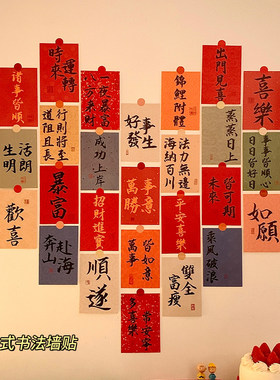 諸事皆順心
生活明朗
歡喜
時來
運轉
行則將至
道阻且長
暴富
赴海
奔山
一夜暴富
八方來財
成功上岸
招財進寶
順遂
好事
發生
萬事
勝意
皆如意
常安寧
多喜樂
錦鯉附體
法力無邊
海納百川
平安喜樂
出門見喜
蒸蒸
日上
未來
皆可期
乘風破浪
喜樂
如願
式书法墙贴